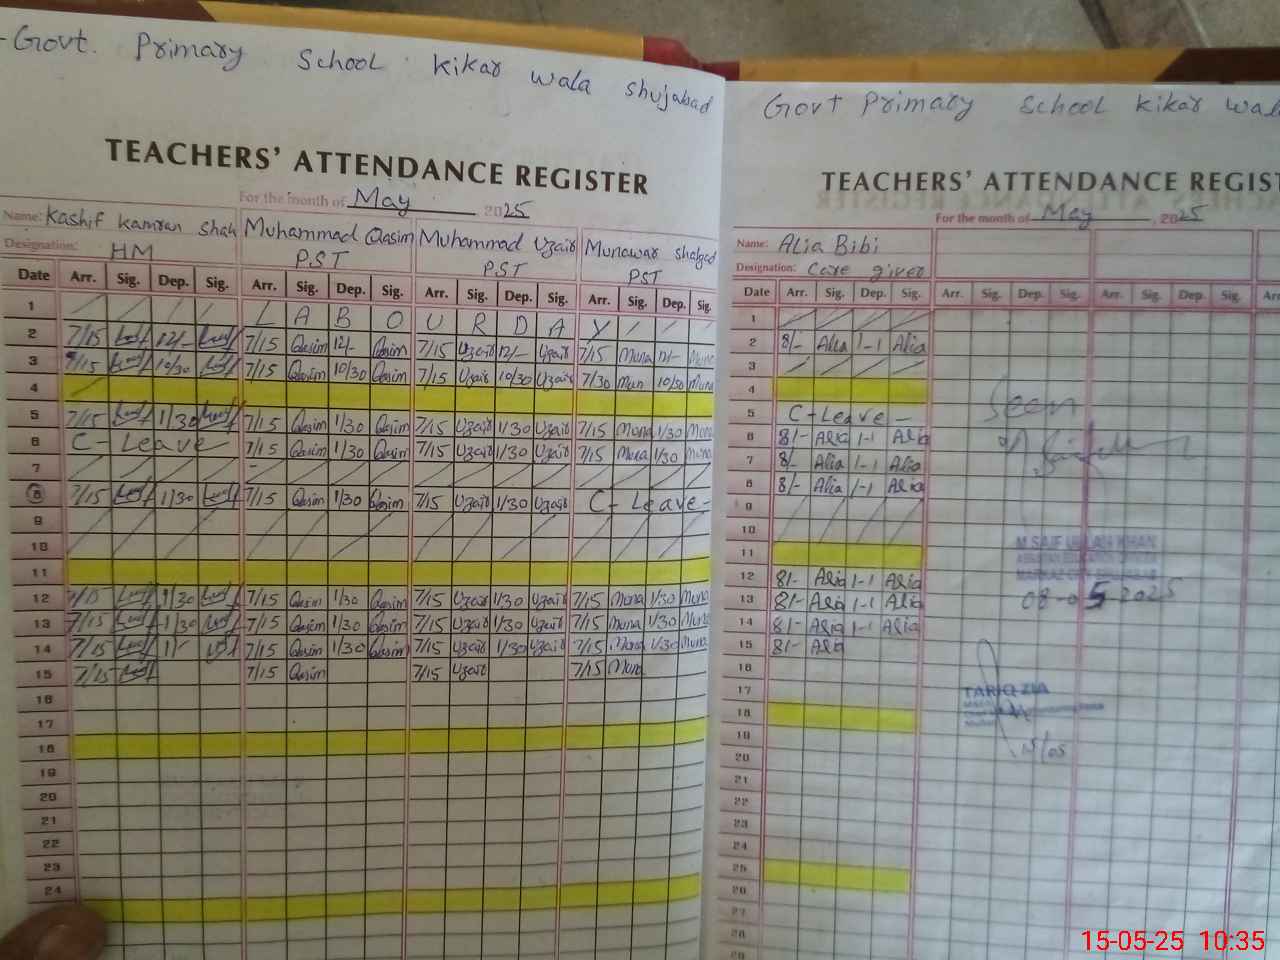 Govt. Primary School Kikar wala Shujabad
TEACHERS' ATTENDANCE REGISTER
For the month of May 2025
Name: Kashif Kamran Shah Muhammad Qasim Muhammad Uzair Munawar Shahzad
Designation: HM PST PST PST
Date Arr. Sig. Dep. Sig. Arr. Sig. Dep. Sig. Arr. Sig. Dep. Sig. Arr. Sig. Dep. Sig.
1 L A B O U R D A Y
2 7/15 12/- 7/15 Qasim 12/- Qasim 7/15 Uzair 12/- Uzair 7/15 Muna 12/- Muna
3 7/15 10/30 7/15 Qasim 10/30 Qasim 7/15 Uzair 10/30 Uzair 7/30 Mun 10/30 Muna
4
5 7/15 1/30 7/15 Qasim 1/30 Qasim 7/15 Uzair 1/30 Uzair 7/15 Muna 1/30 Muna
6 C-Leave 7/15 Qasim 1/30 Qasim 7/15 Uzair 1/30 Uzair 7/15 Muna 1/30 Muna
7
8 7/15 1/30 7/15 Qasim 1/30 Qasim 7/15 Uzair 1/30 Uzair C-Leave-
9
10
11
12 7/15 1/30 7/15 Qasim 1/30 Qasim 7/15 Uzair 1/30 Uzair 7/15 Muna 1/30 Muna
13 7/15 1/30 7/15 Qasim 1/30 Qasim 7/15 Uzair 1/30 Uzair 7/15 Muna 1/30 Muna
14 7/15 7/15 Qasim 1/30 Qasim 7/15 Uzair 1/30 Uzair 7/15 Muna 1/30 Muna
15 7/15 7/15 Qasim 7/15 Uzair 7/15 Muna
16
17
18
19
20
21
22
23
24
Govt Primary School Kikar Wala
TEACHERS' ATTENDANCE REGIST
For the month of May, 2025
Name: Alia Bibi
Designation: Care giver
Date Arr. Sig. Dep. Sig. Arr. Sig. Dep. Sig. Arr. Sig. Dep. Sig. Arr
1
2 8/- Alia 1-1 Alia
3
4
5 C-Leave-
6 8/- Alia 1-1 Alia
7 8/- Alia 1-1 Alia
8 8/- Alia 1-1 Alia
9
10
11
12 8/- Alia 1-1 Alia
13 8/- Alia 1-1 Alia
14 8/- Alia 1-1 Alia
15 8/- Alia
16
17
18
19
20
21
22
23
24
25
26
27
28
29
Seen
M SAIF ULLAH KHAN
08-05-2025
TARIQ ZIA
15/05
15-05-25 10:35